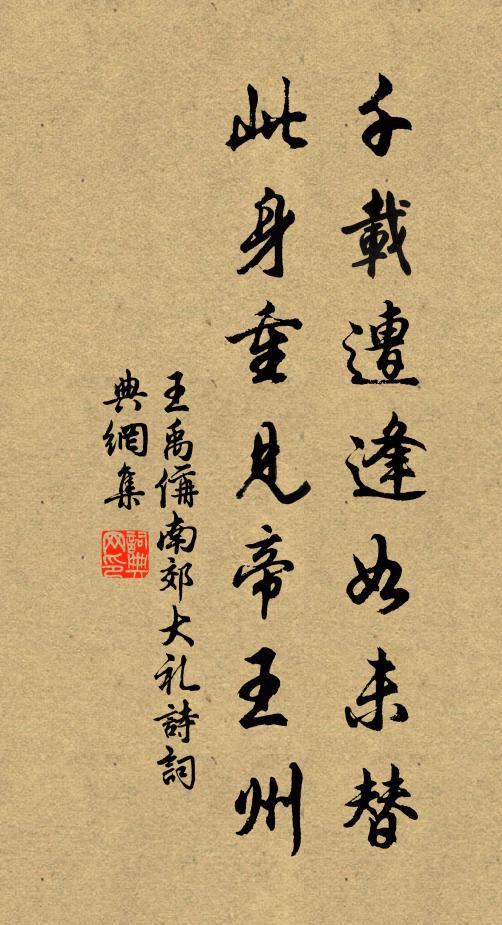 千載遭逢如未替
此身重見帝王州
王禹偁南郊大礼詩詞
典網集
詞典网印